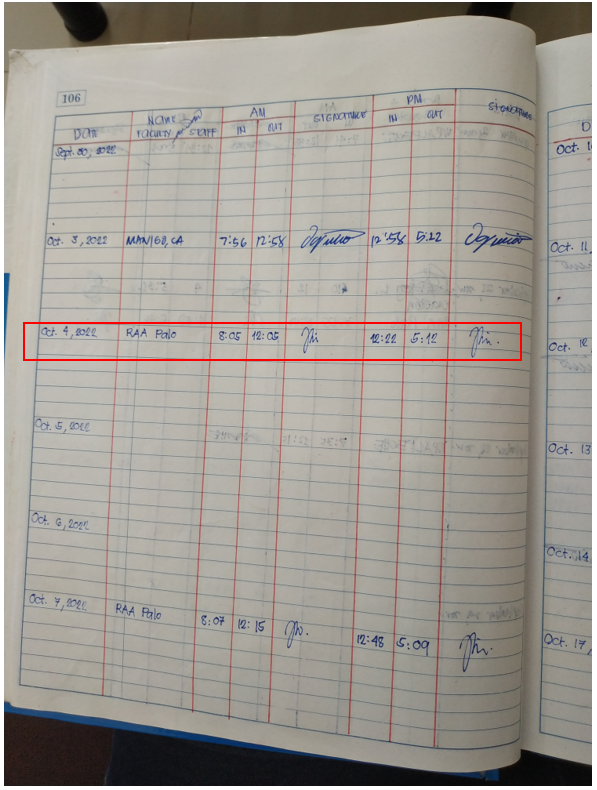 106
AM PM
DATE NAME OF FACULTY / STAFF IN OUT SIGNATURE IN OUT SIGNATURE
Sept. 30, 2022
Oct. 3, 2022 7:56 12:58 12:58 5:22
Oct. 4, 2022 RAA Palo 8:05 12:05 12:22 5:12
Oct. 5, 2022
Oct. 6, 2022
Oct. 7, 2022 RAA Palo 8:07 12:15 12:48 5:09
D
Oct. 10
Oct. 11,
Oct. 12,
Oct. 13
Oct. 14
Oct. 17,